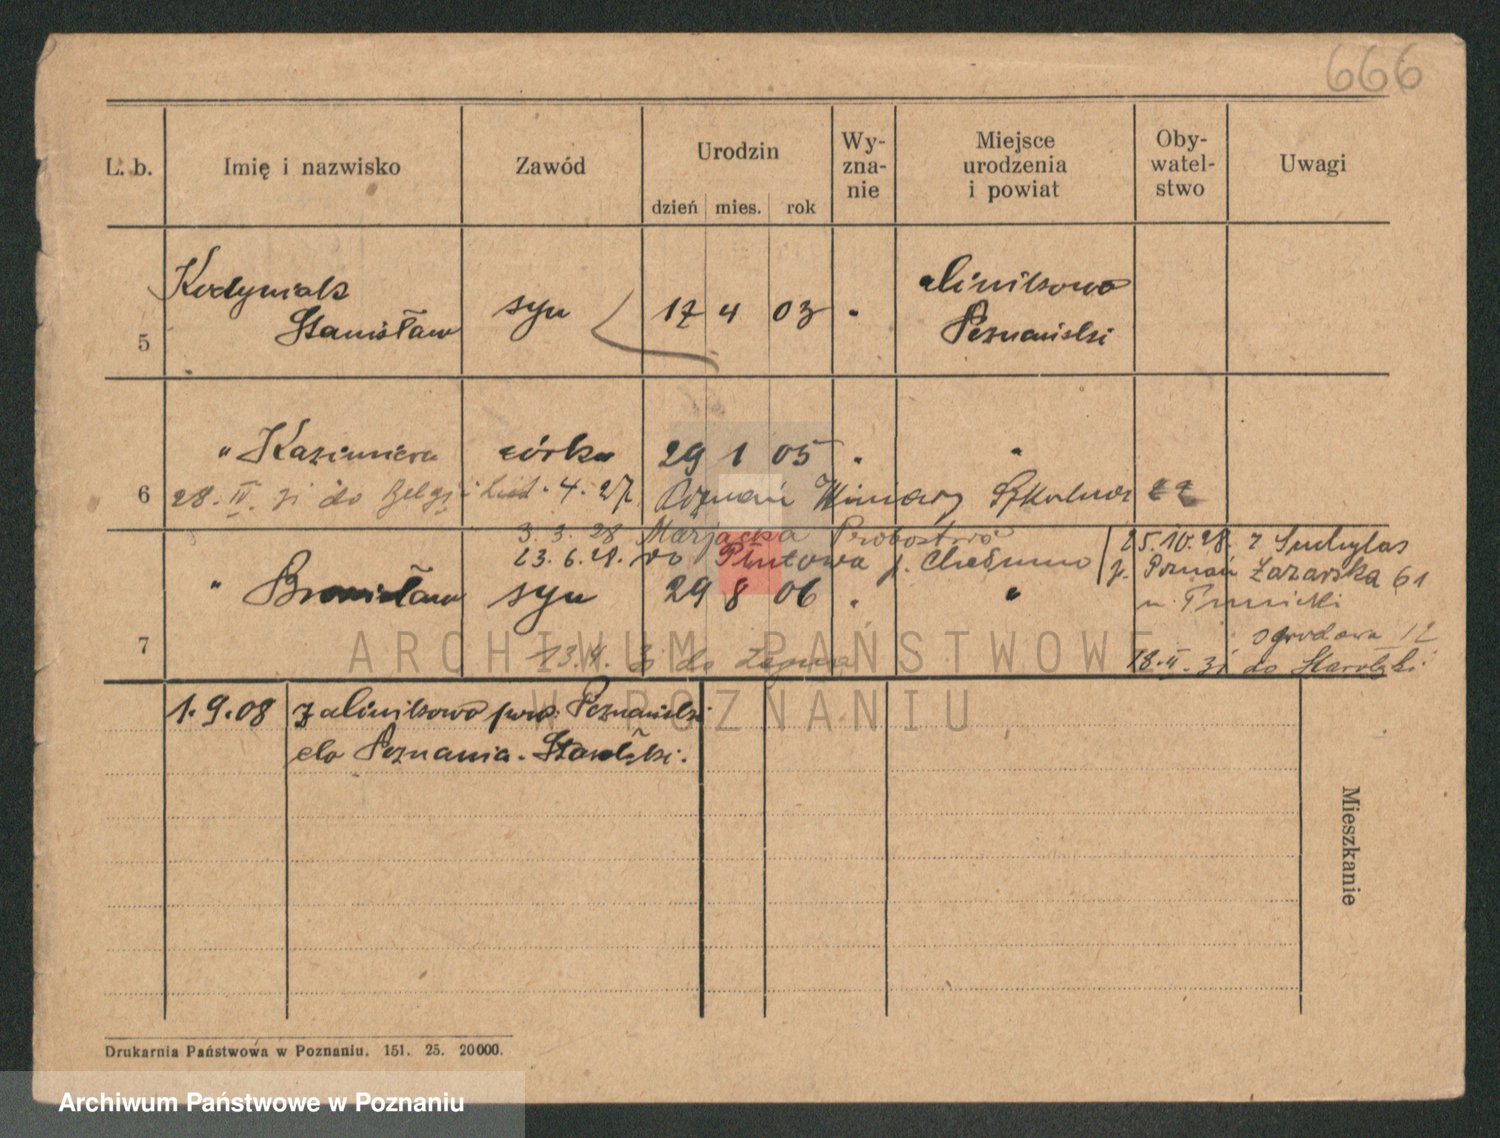 666
L. b.
Imię i nazwisko
Zawód
Urodzin
dzień mies. rok
Wy-
zna-
nie
Miejsce
urodzenia
i powiat
Oby-
watel-
stwo
Uwagi
5
Kudyniak
Stanisław
syn
17 4 03
Poznański
6
" Kazimiera
córka
29 1 05
"
28. IV. 31 do Belgji
4. 27. Poznań Winiary Szkolna 22
3. 3. 28
23. 6. 28. do Plutowa p. Chełmno
25. 10. 28. z Suchylas
p. Poznań Łazarska 61
7
" Bronisław
syn
29 8 06
"
ogrodowa 12
13. 4. 31 do
18. II. 31 do Starołęki
1. 9. 08
pow. Poznański
do Poznania - Starołęki.
Mieszkanie
Drukarnia Państwowa w Poznaniu. 151. 25. 20000.
ARCHIWUM PAŃSTWOWE
W POZNANIU
Archiwum Państwowe w Poznaniu